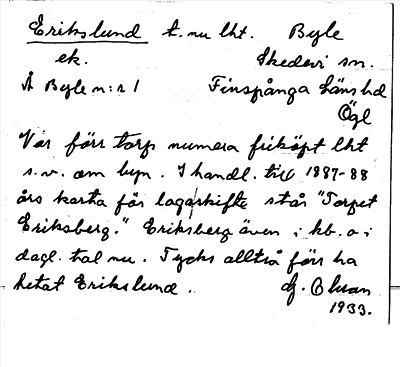 Erikslund t. nu lht. Byle
ek. Skedevi sn.
Å Byle n:r 1 Finspånga läns hd
Ögl
Var förr torp numera friköpt lht
s.v. om byn. I handl. till 1887-88
års karta för laga skifte står "Torpet
Eriksberg." Eriksberg även i kb. o i
dagl. tal nu. Tycks alltså förr ha
hetat Erikslund. G. Olsson
1933.